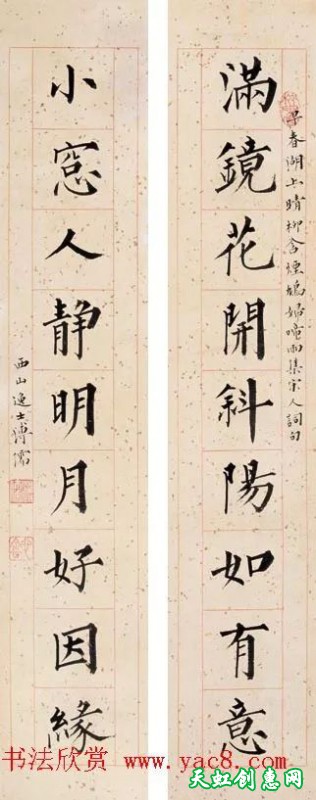 滿鏡花開斜陽如有意
早春湖上晴柳含煙鳩婦喚雨集宋人詞句
小窓人靜明月好因緣
西山逸士溥儒
书法欣赏 www.yac8.com
天虹创惠网